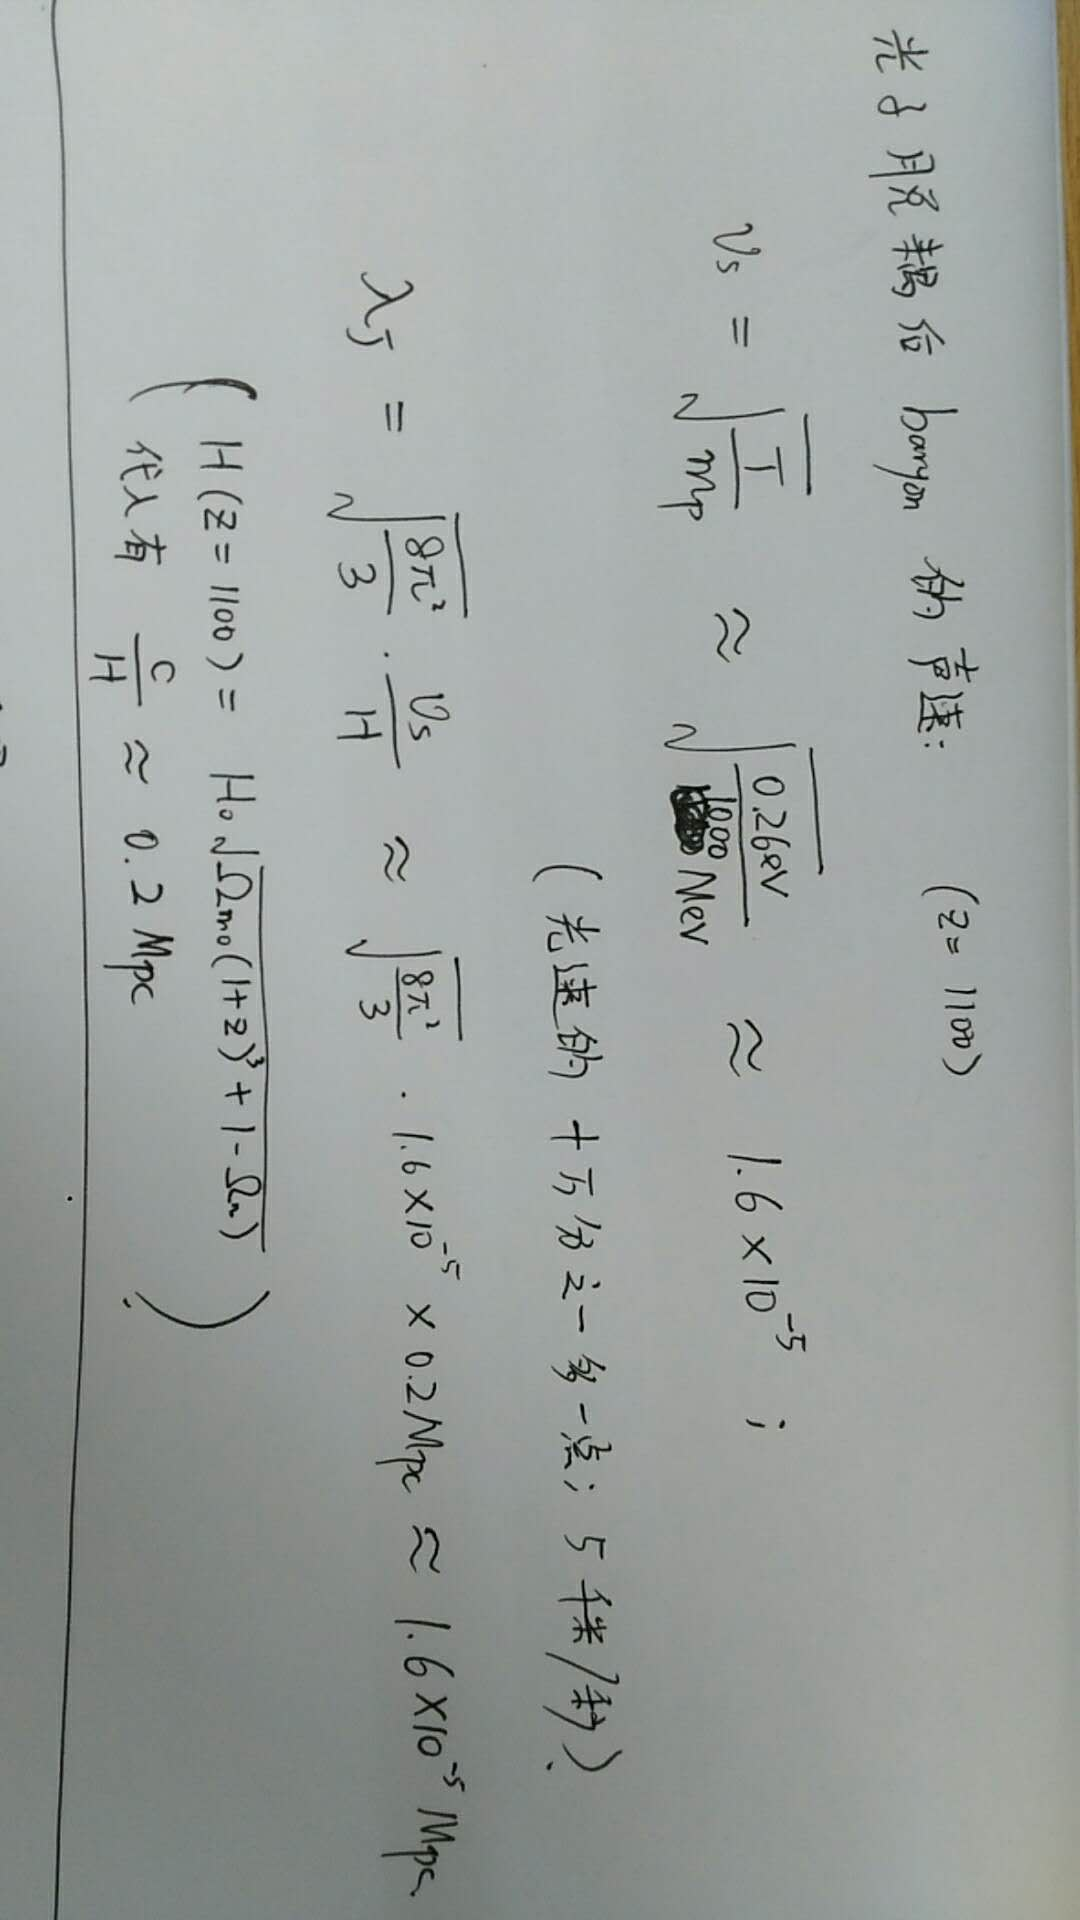 光子脱耦后 baryon 的声速: (z=1100)
υs = √(T/mp) ≈ √(0.26eV/1000 Mev) ≈ 1.6×10⁻⁵ ;
(光速的十万分之一多一点; 5千米/秒).
λJ = √(8π²/3) · υs/H ≈ √(8π²/3) · 1.6×10⁻⁵ × 0.2Mpc ≈ 1.6×10⁻⁵ Mpc.
( H(z=1100) = H₀√(Ωm₀(1+z)³+1-Ωm)
代入有 c/H ≈ 0.2 Mpc . )